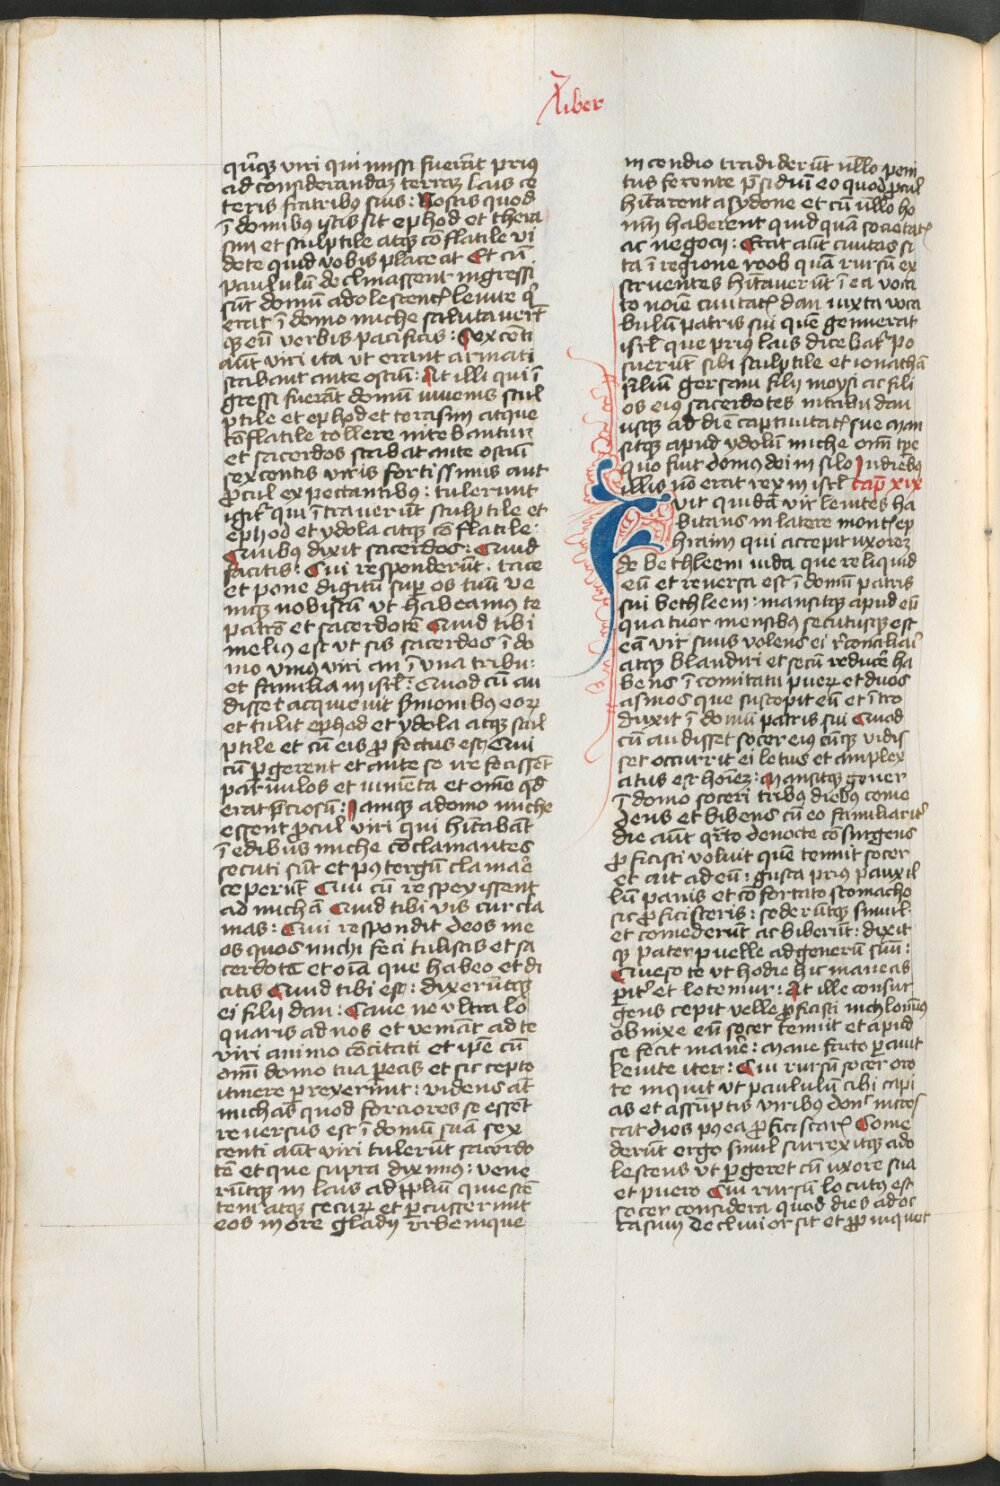 Liber
qu̅q̨ viri qui missi fuera̅t priꝰ
ad considerandaꝫ terraꝫ lais ce
teris fratribꝰ suis : Nostis quod
i̅ domibꝰ istis sit ephod et thera
fin et sculptile atqꝫ co̅flatile vi
dete quid vobis placeat Et cu̅
paululu̅ declinassent ingressi
su̅t domu̅ adolescent̨ leuite q̍
erat i̅ domo miche salutaueru̅t
qꝫ eu̅ verbis pacificis : Sexcenti
aut̅ viri ita vt erant armati
stabant ante ostiu̅ : At illi qui i̅
gressi fuera̅t domu̅ iuuenis scul
ptile et ephod et terafim atque
co̅flatile tollere nitebantur
et sacerdos stabat ante ostiu̅
sexcentis viris fortissimis aut
ꝓcul expectantibꝰ : tulerunt
igit̉ qui i̅trauerūt sculptile et
ephod et ydola atqꝫ co̅flatile :
Quibꝰ dixit sacerdos : Quid
facitis : Cui responderu̅t . tace
et pone digitu̅ suꝑ os tuu̅ ve
niqꝫ nobiscu̅ vt habeamꝰ te
patre̅ et sacerdote̅ Quid tibi
meliꝰ est vt sis sacerdos i̅ do
mo vniꝰ viri an i̅ vna tribu :
et familia in isrl̅ : Quod cu̅ au
disset acquieuit ẜmonibꝰ eoꝝ
et tulit ephod et ydola atqꝫ scul
ptile et cu̅ eis ꝓfectus est Qui
cu̅ ꝑgerent et ante se ire fecisse̅t
paruulos et iume̅ta et om̅e qd̅
erat p̅ciosu̅ : Iamqꝫ a domo miche
essent ꝓcul viri qui hi̅taba̅t
i̅ edibus miche co̅clamantes
secuti su̅t et pꝰ tergu̅ clama̅e
ceperu̅t Qui cu̅ respexissent
ad micha̅ Quid tibi vis cur cla
mas : Qui respondit deos me
os quos michi feci tulistis et sa
cerdote̅ et oi̅a que habeo et di
citis Quid tibi est : dixeru̅tqꝫ
ei filii dan : Caue ne vltra lo
quaris ad nos et venia̅t ad te
viri animo co̅citati et ip̅e cu̅
omi̅ domo tua ꝑeas et sic cepto
itinere prexerunt : videns aut̅
michas quod forciores se esse̅t
reuersus est i̅ domu̅ sua̅ sex
centi aut̅ viri tuleru̅t sacerdo
te̅ et que supra diximꝰ : vene
ru̅tqꝫ in lais ad pp̅lu̅ quiesce̅
tem atqꝫ securꝝ et ꝑcusserunt
eos in ore gladii vrbemque
incendio tradideru̅t vllo peni
tus ferente p̅sidiu̅ eo quod ꝓcul
hi̅tarent a sydone et cu̅ vllo ho
mi̅ haberent quidqua̅ societat̨
ac negocii : Erat aut̅ ciuitas si
ta i̅ regione roob qua̅ rursu̅ ex
struentes hi̅taueru̅t i̅ ea voca
to noi̅e ciuitat̨ dan iuxta voca
bulu̅ patris sui que̅ genuerat
isrl̅ que prius lais dicebat̉ Po
sueru̅t sibi sculptile et ionatha̅
filiu̅ gersam filij moysi ac fili
os eiꝰ sacerdotes in tribu dan
usqꝫ ad die̅ captiuitat̨ sue man
sitqꝫ apud ydolu̅ miche om̅i tp̅e
quo fuit domꝰ dei in silo In diebꝰ
illis no̅ erat rex in isrl̅ Cap̅ xix
Fuit quida̅ vir leuites ha
bitans in latere mont̨ ep
hraim qui accepit vxoreꝫ
de bethleem iuda que reliquid
eu̅ et reuersa est i̅ domu̅ patris
sui bethleem : mansitqꝫ apud eu̅
quatuor mensibꝰ secutusqꝫ est
ea̅ vir suus volens ei r̅conciliar̉
atqꝫ blandiri et secu̅ reduce̅ ha
bens i̅ comitatu pueꝝ et duos
asinos que suscepit eu̅ et i̅tro
duxit i̅ domu̅ patris sui Quod
cu̅ audisset socer eiꝰ eu̅qꝫ vidis
set occurrit ei letus et amplex
atus est hoi̅eꝫ : Mansitqꝫ gener
i̅ domo soceri tribꝰ diebꝰ come
dens et bibens cu̅ eo familiarit̉
die aut̅ qr̅to de nocte co̅surgens
ꝓficisci voluit que̅ tenuit socer
et ait ad eu̅ : gusta prius pauxil
lu̅ panis et co̅fortato stomacho
sic ꝓficisceris : sederu̅tqꝫ simul
et comederu̅t ac biberu̅t : dixit
qꝫ pater puelle ad generu̅ suu̅ :
Queso te vt hodie hic maneas
ꝑit̉ et letemur : At ille consur
gens cepit velle ꝓficisci nichlomi̅ꝰ
obnixe eu̅ socer tenuit et apud
se fecit mane̅ : Mane facto parauit
leuite iter : Cui rursu̅ socer oro
te inquit vt paululu̅ cibi capi
as et assu̅ptis viribꝰ don̅ incre
scat dies pꝰea ꝓficiscar̨ Come
deru̅t ergo simul surrexitqꝫ ado
lescens vt ꝑgeret cu̅ vxore sua
et puero Cui rursu̅ locutꝰ est
socer considera quod dies ad oc
casum decliuior sit et ꝓpinquet